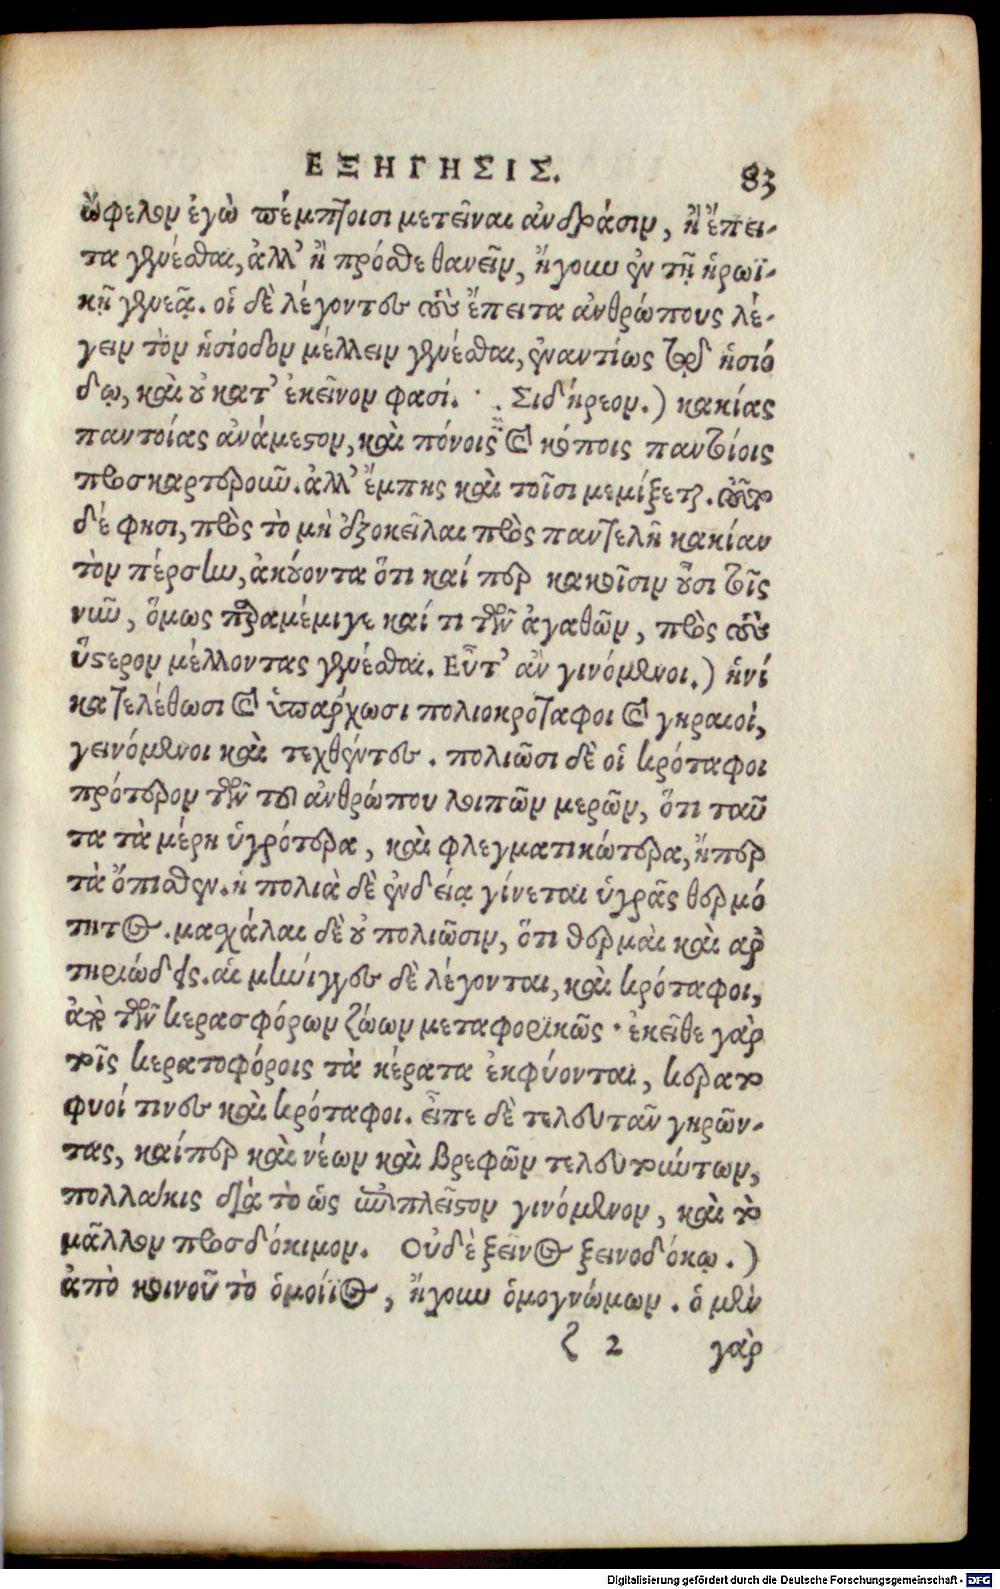 ΕΞΗΓΗΣΙΣ. 83
ὤφελον ἐγὼ πέμπτοισι μετεῖναι ἀνδράσιν, ἢ ἔπει-
τα γενέσθαι, ἀλλ' ἢ πρόσθε θανεῖν, ἤγουν ἐν τῇ ἡρωϊ-
κῇ γενεᾷ. οἱ δὲ λέγοντες τοὺς ἔπειτα ἀνθρώπους λέ-
γειν τὸν ἡσίοδον μέλλειν γενέσθαι, ἐναντίως τῷ ἡσιό
δῳ, καὶ οὐ κατ' ἐκεῖνον φασί. Σιδήρεον.) κακίας
παντοίας ἀνάμεστον, καὶ πόνοις καὶ κόποις παντοίοις
προσκαρτεροῦν. ἀλλ' ἔμπης καὶ τοῖσι μεμίξεται. τοῦτο
δέ φησι, πρὸς τὸ μὴ ἐξοκεῖλαι πρὸς παντελῆ κακίαν
τὸν πέρσην, ἀκούοντα ὅτι καί περ κακοῖσιν οὖσι τοῖς
νῦν, ὅμως παραμέμιγε καί τι τῶν ἀγαθῶν, πρὸς τοὺς
ὕστερον μέλλοντας γενέσθαι. Εὖτ' ἂν γινόμενοι.) ἡνί
κα τελέθωσι καὶ ὑπάρχωσι πολιοκρόταφοι καὶ γηραιοί,
γεινόμενοι καὶ τεχθέντες. πολιῶσι δὲ οἱ κρόταφοι
πρότερον τῶν τοῦ ἀνθρώπου λοιπῶν μερῶν, ὅτι ταῦ
τα τὰ μέρη ὑγρότερα, καὶ φλεγματικώτερα, ἤπερ
τὰ ὄπισθεν. ἡ πολιὰ δὲ ἐνδείᾳ γίνεται ὑγρᾶς θερμό
τητος. μαχάλαι δὲ οὐ πολιῶσιν, ὅτι θερμαὶ καὶ ἀρ
τηριώδεις. αἱ μήνιγγες δὲ λέγονται, καὶ κρόταφοι,
ἀπὸ τῶν κερασφόρων ζώων μεταφορικῶς· ἐκεῖθε γὰρ
τοῖς κερατοφόροις τὰ κέρατα ἐκφύονται, κερατο
φυοί τινες καὶ κρόταφοι. εἶπε δὲ τελευτᾶν γηρῶν-
τας, καίπερ καὶ νέων καὶ βρεφῶν τελευτώντων,
πολλάκις διὰ τὸ ὡς ἐπιπλεῖστον γινόμενον, καὶ τὸ
μᾶλλον προσδόκιμον. Οὐδὲ ξεῖνος ξεινοδόκῳ.)
ἀπὸ κοινοῦ τὸ ὁμοίϊος, ἤγουν ὁμογνώμων. ὁ μὲν
ζ 2 γὰρ
Digitalisierung gefördert durch die Deutsche Forschungsgemeinschaft - DFG